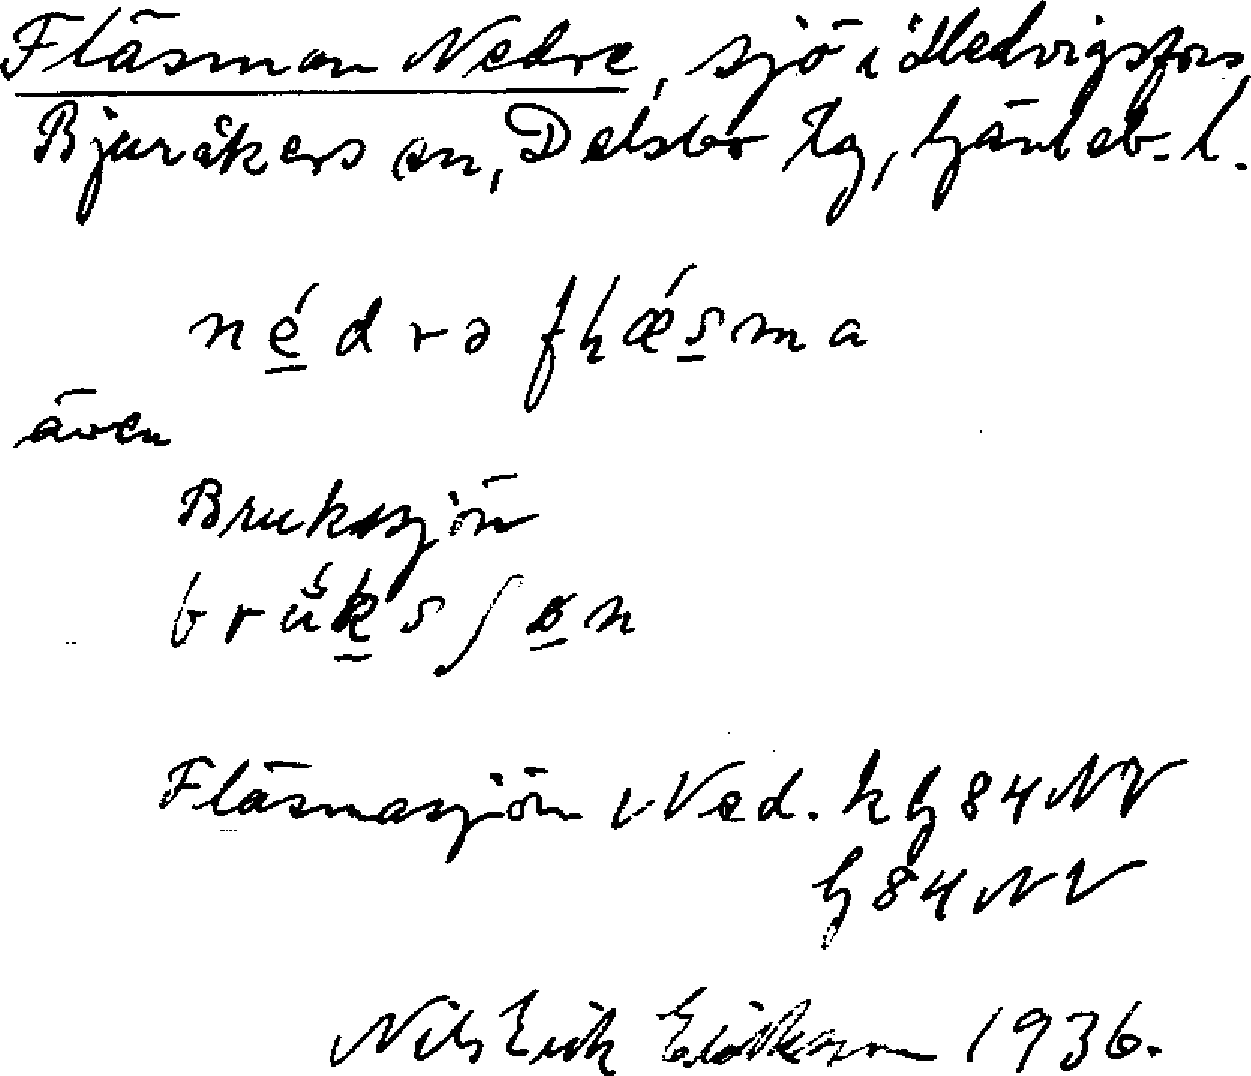 Fläsman Nedre, sjö i Hedvigsfors,
Bjuråkers sn, Delsbo tg, Gävleb. l.
nédrə fɧǽsma
även
Brukssjön
brúksʃøn
Fläsmasjön, Ned. k G 84 NV
G 84 NV
Nils Erik 1936.